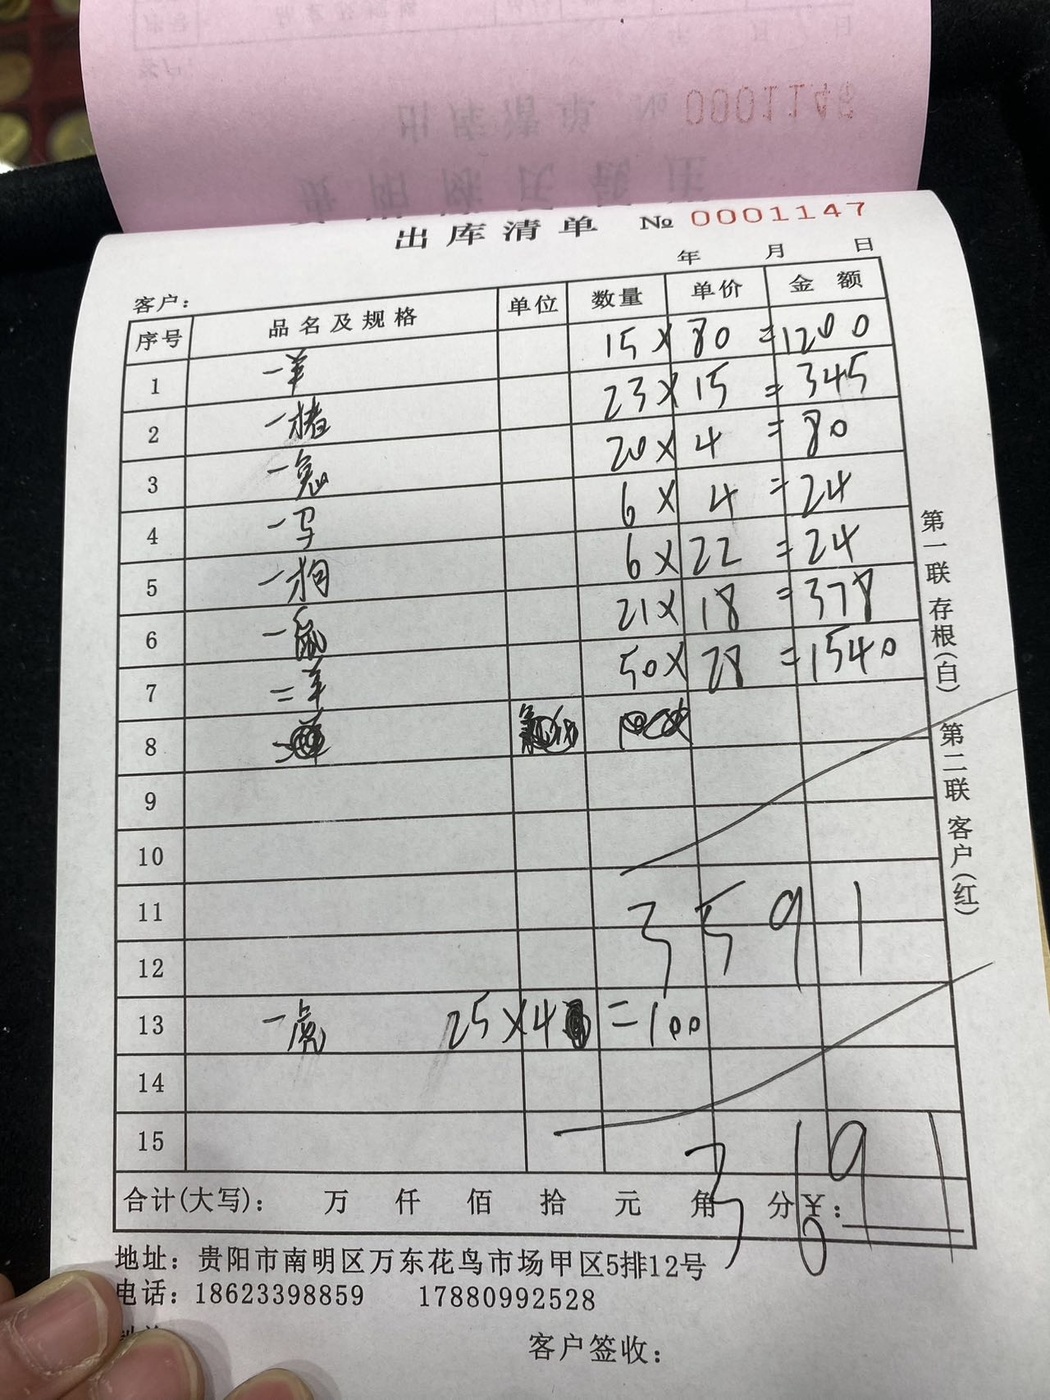 出库清单 № 0001147
年 月 日
客户：
序号 品名及规格 单位 数量 单价 金额
一羊 15 × 80 = 1200
1 一猪 23 × 15 = 345
2 一兔 20 × 4 = 80
3 一马 6 × 4 = 24
4 一狗 6 × 22 = 24
5 一鼠 21 × 18 = 378
6 二羊 50 × 28 = 1540
7
8
9
10
11 3591
12
13 一虎 25 × 4 = 100
14
15
3691
合计(大写)： 万 仟 佰 拾 元 角 分 ¥：
地址：贵阳市南明区万东花鸟市场甲区5排12号
电话：18623398859 17880992528
客户签收：
第一联 存根(白) 第二联 客户(红)
0001148